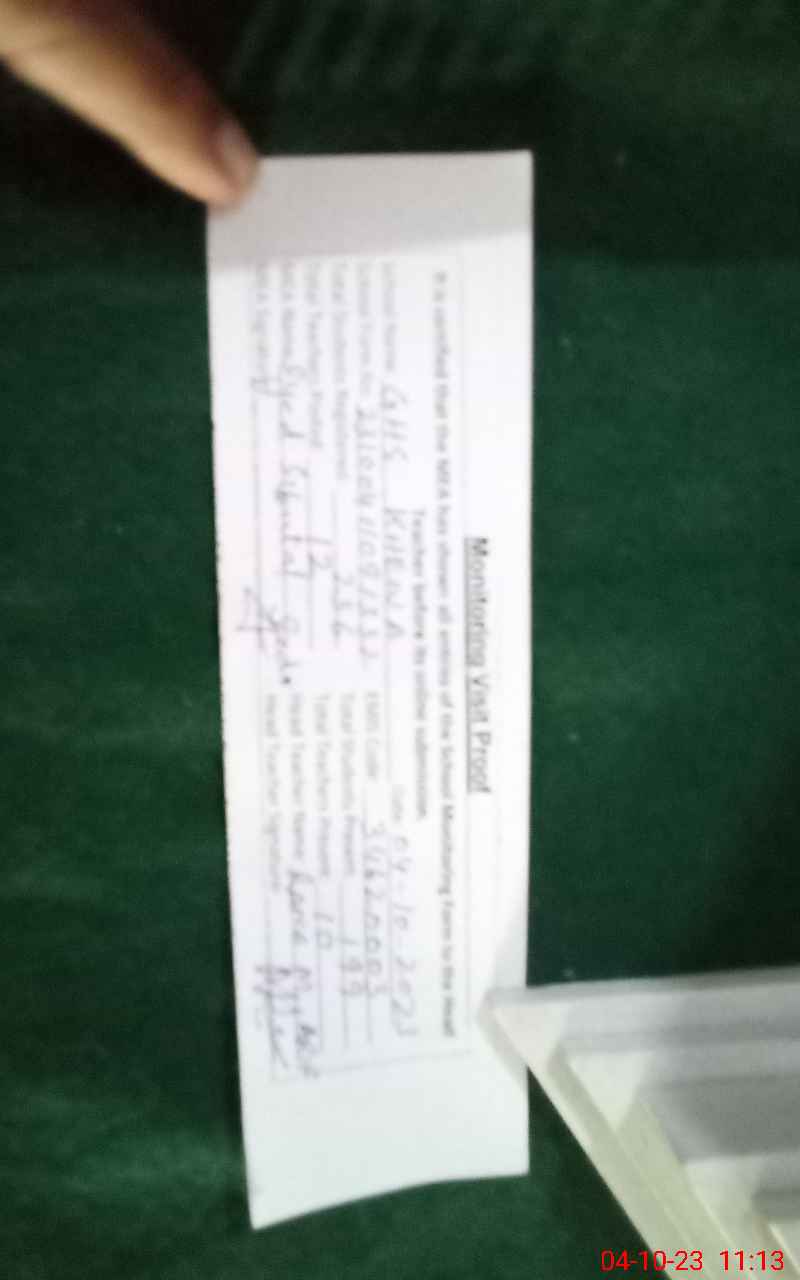 Monitoring Visit Proof
It is certified that the MEA has shown all entries of the School Monitoring Form to the Head
Teacher before its online submission.
School Name: GHS KHENA Date: 04-10-2023
EMIS Code: 34620003
Total Students Registered: 236 Total Students Present: 199
Total Teachers Posted: 12 Total Teachers Present: 10
MEA Name: Syed Head Teacher Name:
MEA Signature: Head Teacher Signature:
04-10-23 11:13